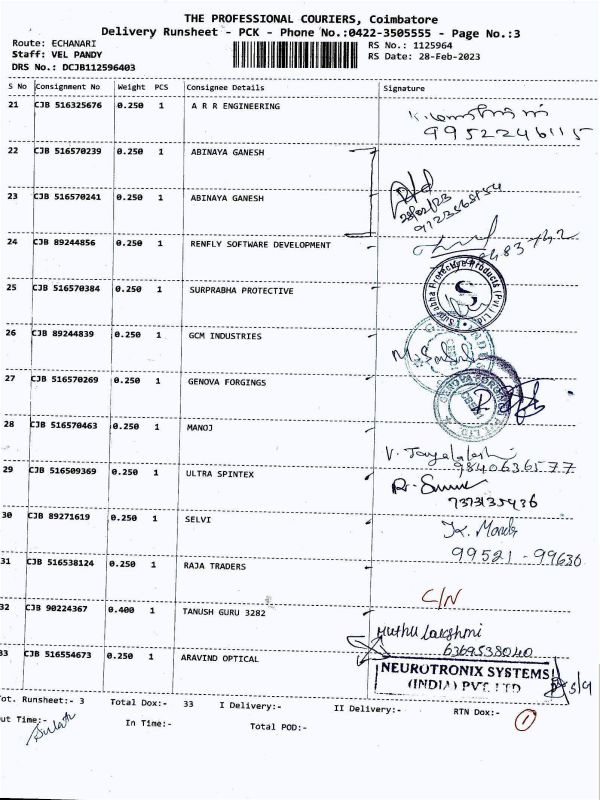 THE PROFESSIONAL COURIERS, Coimbatore
Delivery Runsheet - PCK - Phone No.:0422-3505555 - Page No.:3
Route: ECHANARI
RS No.: 1125964
Staff: VEL PANDY
RS Date: 28-Feb-2023
DRS No.: DCJB112596403
S No Consignment No Weight PCS Consignee Details Signature
21 CJB 516325676 0.250 1 A R R ENGINEERING
9952246115
22 CJB 516570239 0.250 1 ABINAYA GANESH
23 CJB 516570241 0.250 1 ABINAYA GANESH
28/02/23
9123565954
24 CJB 89244856 0.250 1 RENFLY SOFTWARE DEVELOPMENT
25 CJB 516570384 0.250 1 SURPRABHA PROTECTIVE
26 CJB 89244839 0.250 1 GCM INDUSTRIES
27 CJB 516570269 0.250 1 GENOVA FORGINGS
28 CJB 516570463 0.250 1 MANOJ
V. Jayalakshmi
9840636577
29 CJB 516509369 0.250 1 ULTRA SPINTEX
7373135436
30 CJB 89271619 0.250 1 SELVI
99521-99636
31 CJB 516538124 0.250 1 RAJA TRADERS
C/N
32 CJB 90224367 0.400 1 TANUSH GURU 3282
Muthu Lakshmi
6369538040
33 CJB 516554673 0.250 1 ARAVIND OPTICAL
NEUROTRONIX SYSTEMS
(INDIA) PVT. LTD
Tot. Runsheet:- 3 Total Dox:- 33 I Delivery:- II Delivery:- RTN Dox:- 1
Out Time:- In Time:- Total POD:-